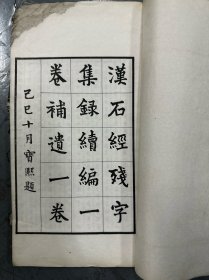 漢石經殘字
集録續編一
卷補遺一卷
己巳十月寶熙題